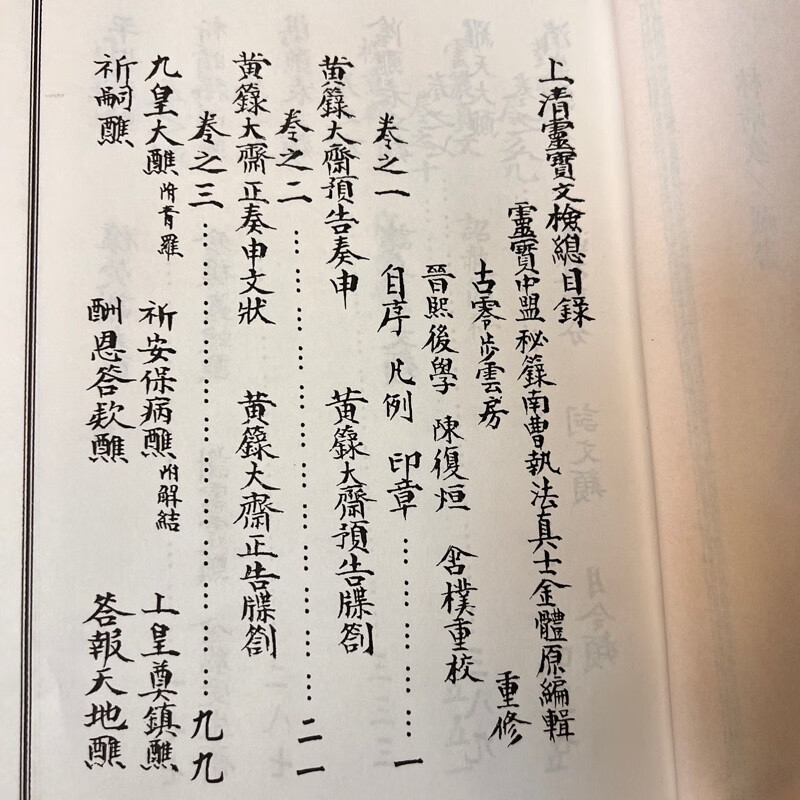 上清靈寶文檢總目錄
靈寶中盟秘籙南曹執法真士金體原編輯
古零步雲房 重修
晉熙後學 陳復烜 含樸重校
自序 凡例 印章……………一
卷之一
黃籙大齋預告奏申 黃籙大齋預告牒劄
卷之二……………………二一
黃籙大齋正奏申文狀 黃籙大齋正告牒劄
卷之三……………………九九
九皇大醮附青羅 祈安保病醮附解結 上皇奠鎮醮
祈嗣醮 酬恩答欵醮 答報天地醮